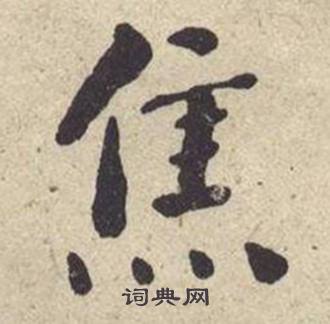 焦
词典网